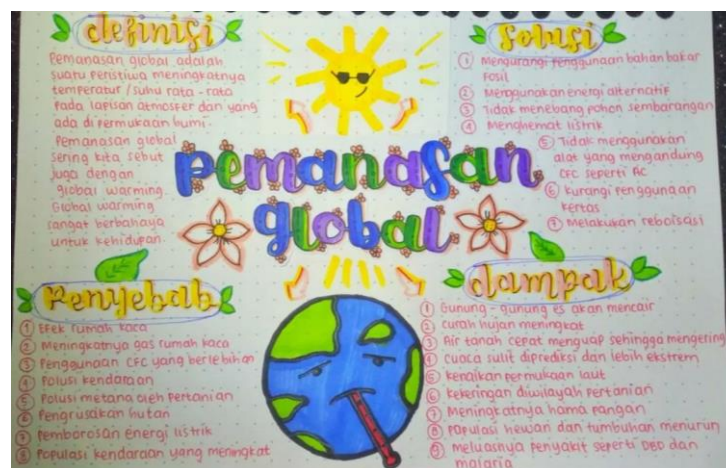 definisi
Pemanasan global adalah
suatu peristiwa meningkatnya
temperatur / suhu rata-rata
pada lapisan atmosfer dan yang
ada di permukaan bumi.
Pemanasan global
sering kita sebut
juga dengan
global warming.
Global warming
sangat berbahaya
untuk kehidupan.
Solusi
1 Mengurangi penggunaan bahan bakar
fosil
2 Menggunakan energi alternatif
3 Tidak menebang pohon sembarangan
4 Menghemat listrik
5 Tidak menggunakan
alat yang mengandung
CFC seperti AC
6 Kurangi penggunaan
kertas
7 Melakukan reboisasi
pemanasan
global
Penyebab
1 Efek rumah kaca
2 Meningkatnya gas rumah kaca
3 Penggunaan CFC yang berlebihan
4 Polusi kendaraan
5 Polusi metana oleh pertanian
6 Pengrusakan hutan
7 Pemborosan energi listrik
8 Populasi kendaraan yang meningkat
dampak
1 Gunung-gunung es akan mencair
2 curah hujan meningkat
3 Air tanah cepat menguap sehingga mengering
4 cuaca sulit diprediksi dan lebih ekstrem
5 kenaikan permukaan laut
6 kekeringan diwilayah pertanian
7 Meningkatnya hama pangan
8 Populasi hewan dan tumbuhan menurun
9 meluasnya penyakit seperti DBD dan
malaria